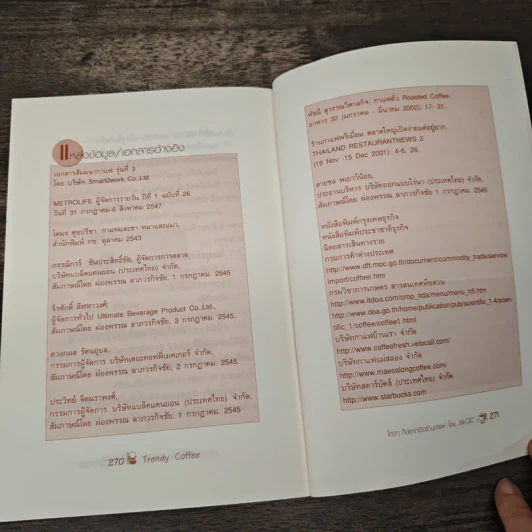 แหล่งข้อมูล/เอกสารอ้างอิง
เอกสารสัมมนากาแฟ รุ่นที่ 3
โดย บริษัท Smart2work Co.,Ltd
METROLIFE ผู้จัดการรายวัน ปีที่ 1 ฉบับที่ 26
วันที่ 31 กรกฎาคม-6 สิงหาคม 2547
โดมร สุขปรีชา, กาแฟและชา หมาและแมว,
สำนักพิมพ์ กซ. ตุลาคม 2543
กรรณิการ์ ชินประสิทธิ์ชัย, ผู้จัดการการตลาด
บริษัทแบล็คแคนยอน (ประเทศไทย) จำกัด,
สัมภาษณ์โดย ผ่องพรรณ ลาภวรกิจชัย, 1 กรกฎาคม. 2545
จีรศักดิ์ ลัฬหาวงศ์,
ผู้จัดการทั่วไป Ultimate Beverage Product Co.,Ltd.,
สัมภาษณ์โดย ผ่องพรรณ ลาภวรกิจชัย, 3 กรกฎาคม. 2545.
ดวงกมล รัตนอุบล,
กรรมการผู้จัดการ บริษัทเดอะคอฟฟี่เมคเกอร์ จำกัด,
สัมภาษณ์โดย ผ่องพรรณ ลาภวรกิจชัย, 2 กรกฎาคม. 2545.
ประวิทย์ จิตนราพงศ์,
กรรมการผู้จัดการ บริษัทแบล็คแคนยอน (ประเทศไทย) จำกัด,
สัมภาษณ์โดย ผ่องพรรณ ลาภวรกิจชัย, 1 กรกฎาคม. 2545
270 Trendy Coffee
พัชนี สุวรรณวิศาลกิจ, กาแฟคั่ว Roasted Coffee,
อาหาร 32 (มกราคม - มีนาคม 2002): 17- 21.
ร้านกาแฟพรีเมี่ยม ตลาดใหญ่เปิดง่ายแต่อยู่ยาก.
THAILAND RESTAURANTNEWS 2
(16 Nov -15 Dec 2001): 4-6, 26.
สายชล พเยาว์น้อย,
ประธานบริหาร บริษัทออกแบบไร่นา (ประเทศไทย) จำกัด,
สัมภาษณ์โดย ผ่องพรรณ ลาภวรกิจชัย 1 กรกฎาคม. 2545
หนังสือพิมพ์กรุงเทพธุรกิจ
หนังสือพิมพ์ประชาชาติธุรกิจ
นิตยสารเส้นทางรวย
กรมการค้าต่างประเทศ
http://www.dft.moc.go.th/document/commodity_trade/service/
import/coffeei.htm
กรมวิชาการเกษตร สารสนเทศพืชสวน
http://www.itdoa.com/crop_rdsi/menu/menu_h5.htm
http://www.doa.go.th/home/publication/pub/scientific_1-4/scien-
tific_1/coffee/coffee1.html
บริษัทกาแฟบ้านเรา จำกัด
http://www.coffeefresh.velocall.com/
บริษัทกาแฟแม่สลอง จำกัด
http://www.maesalongcoffee.com/
บริษัทสตาร์บัคส์ (ประเทศไทย) จำกัด
http://www.starbucks.com
271